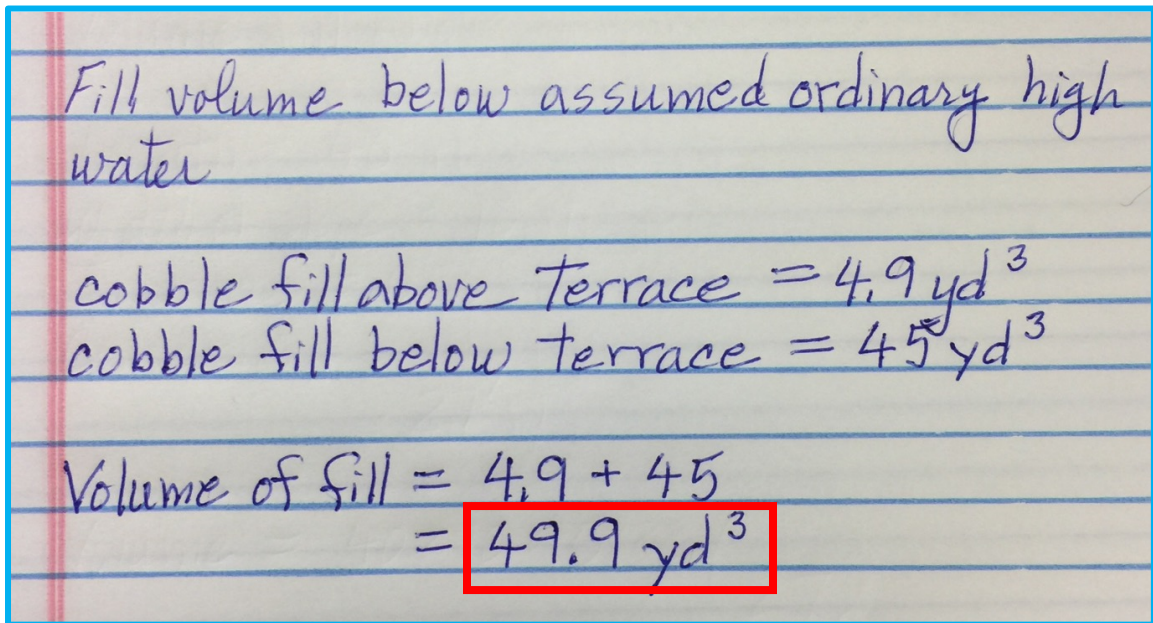 Fill volume below assumed ordinary high
water
cobble fill above terrace = 4.9 yd³
cobble fill below terrace = 45 yd³
Volume of fill = 4.9 + 45
= 49.9 yd³